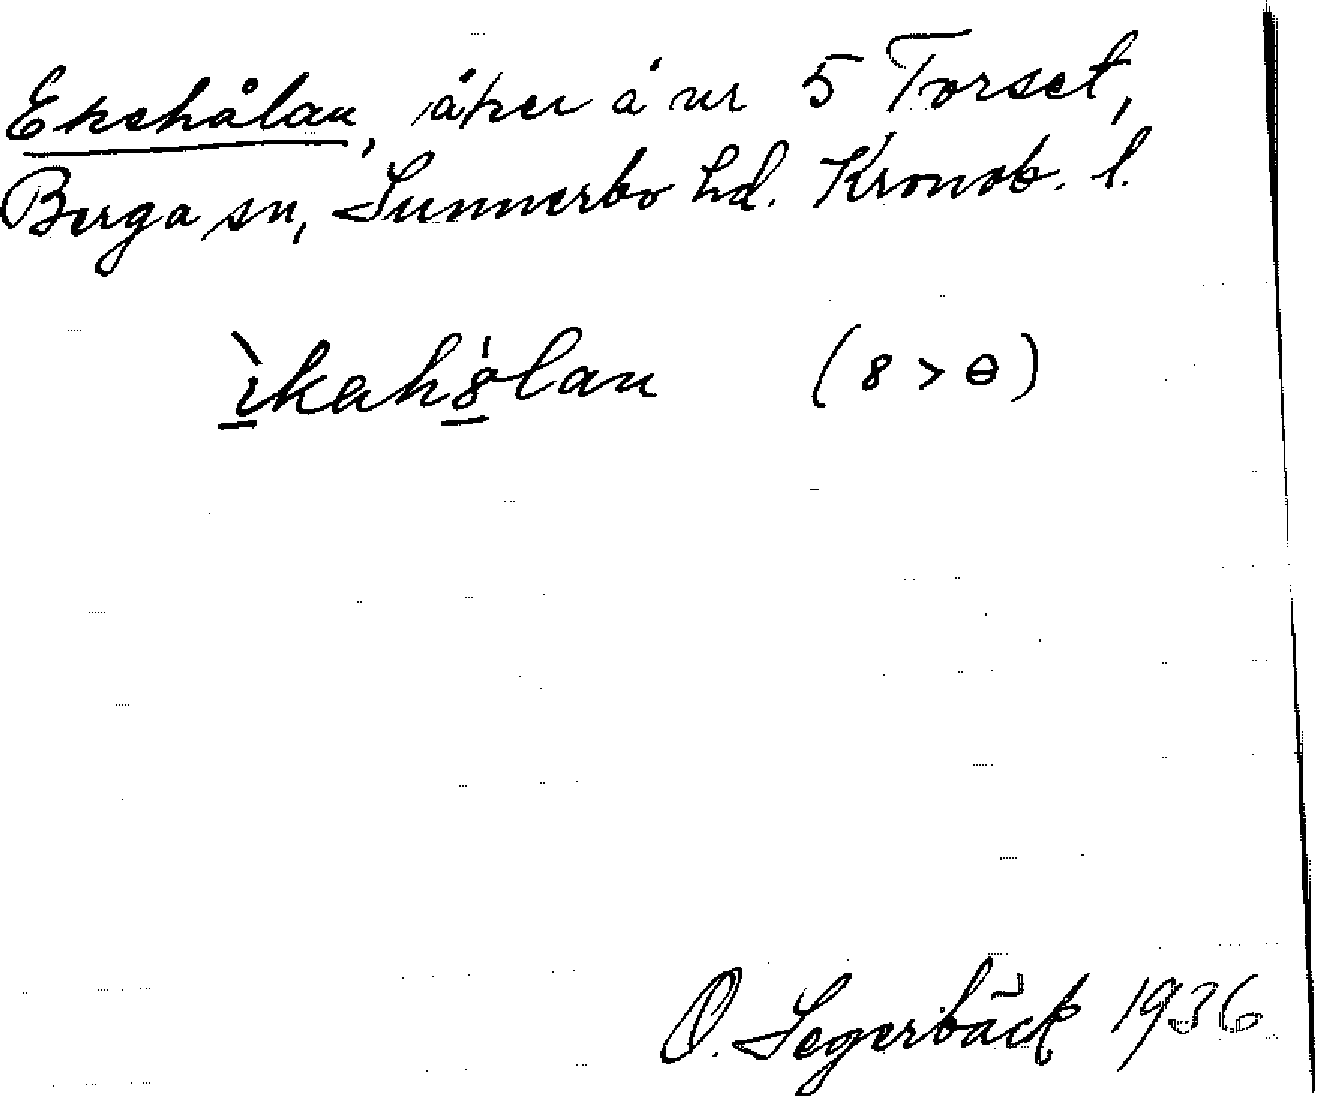 Ekehålan, åker å nr 5 Torset,
Berga sn, Sunnerbo hd. Kronob. l.
ìkahꞌ8lan (8 > ɵ)
O. Segerbäck 1936